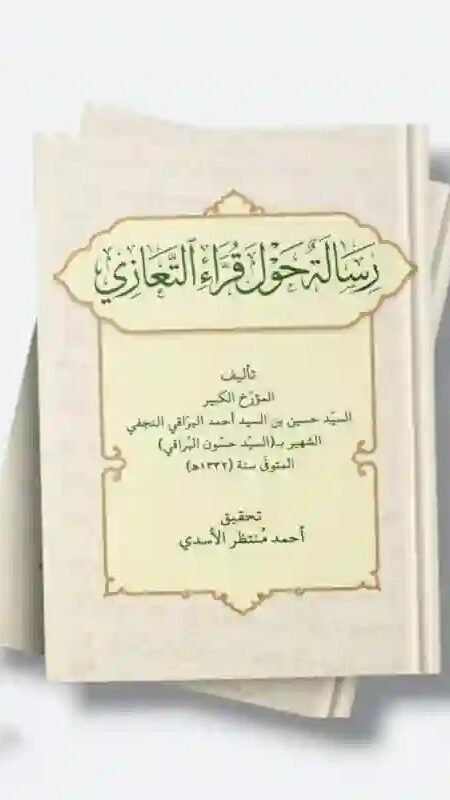 رِسَالَةٌ حَوْلَ قُرَّاءِ التَّعَازِي
تأليف
المؤرّخ الكبير
السيّد حسين بن السيد أحمد البراقي النجفي
الشهير بـ(السيّد حسّون البُراقي)
المتوفّى سنة (١٣٣٢هـ)
تحقيق
أحمد مُنتظر الأسدي